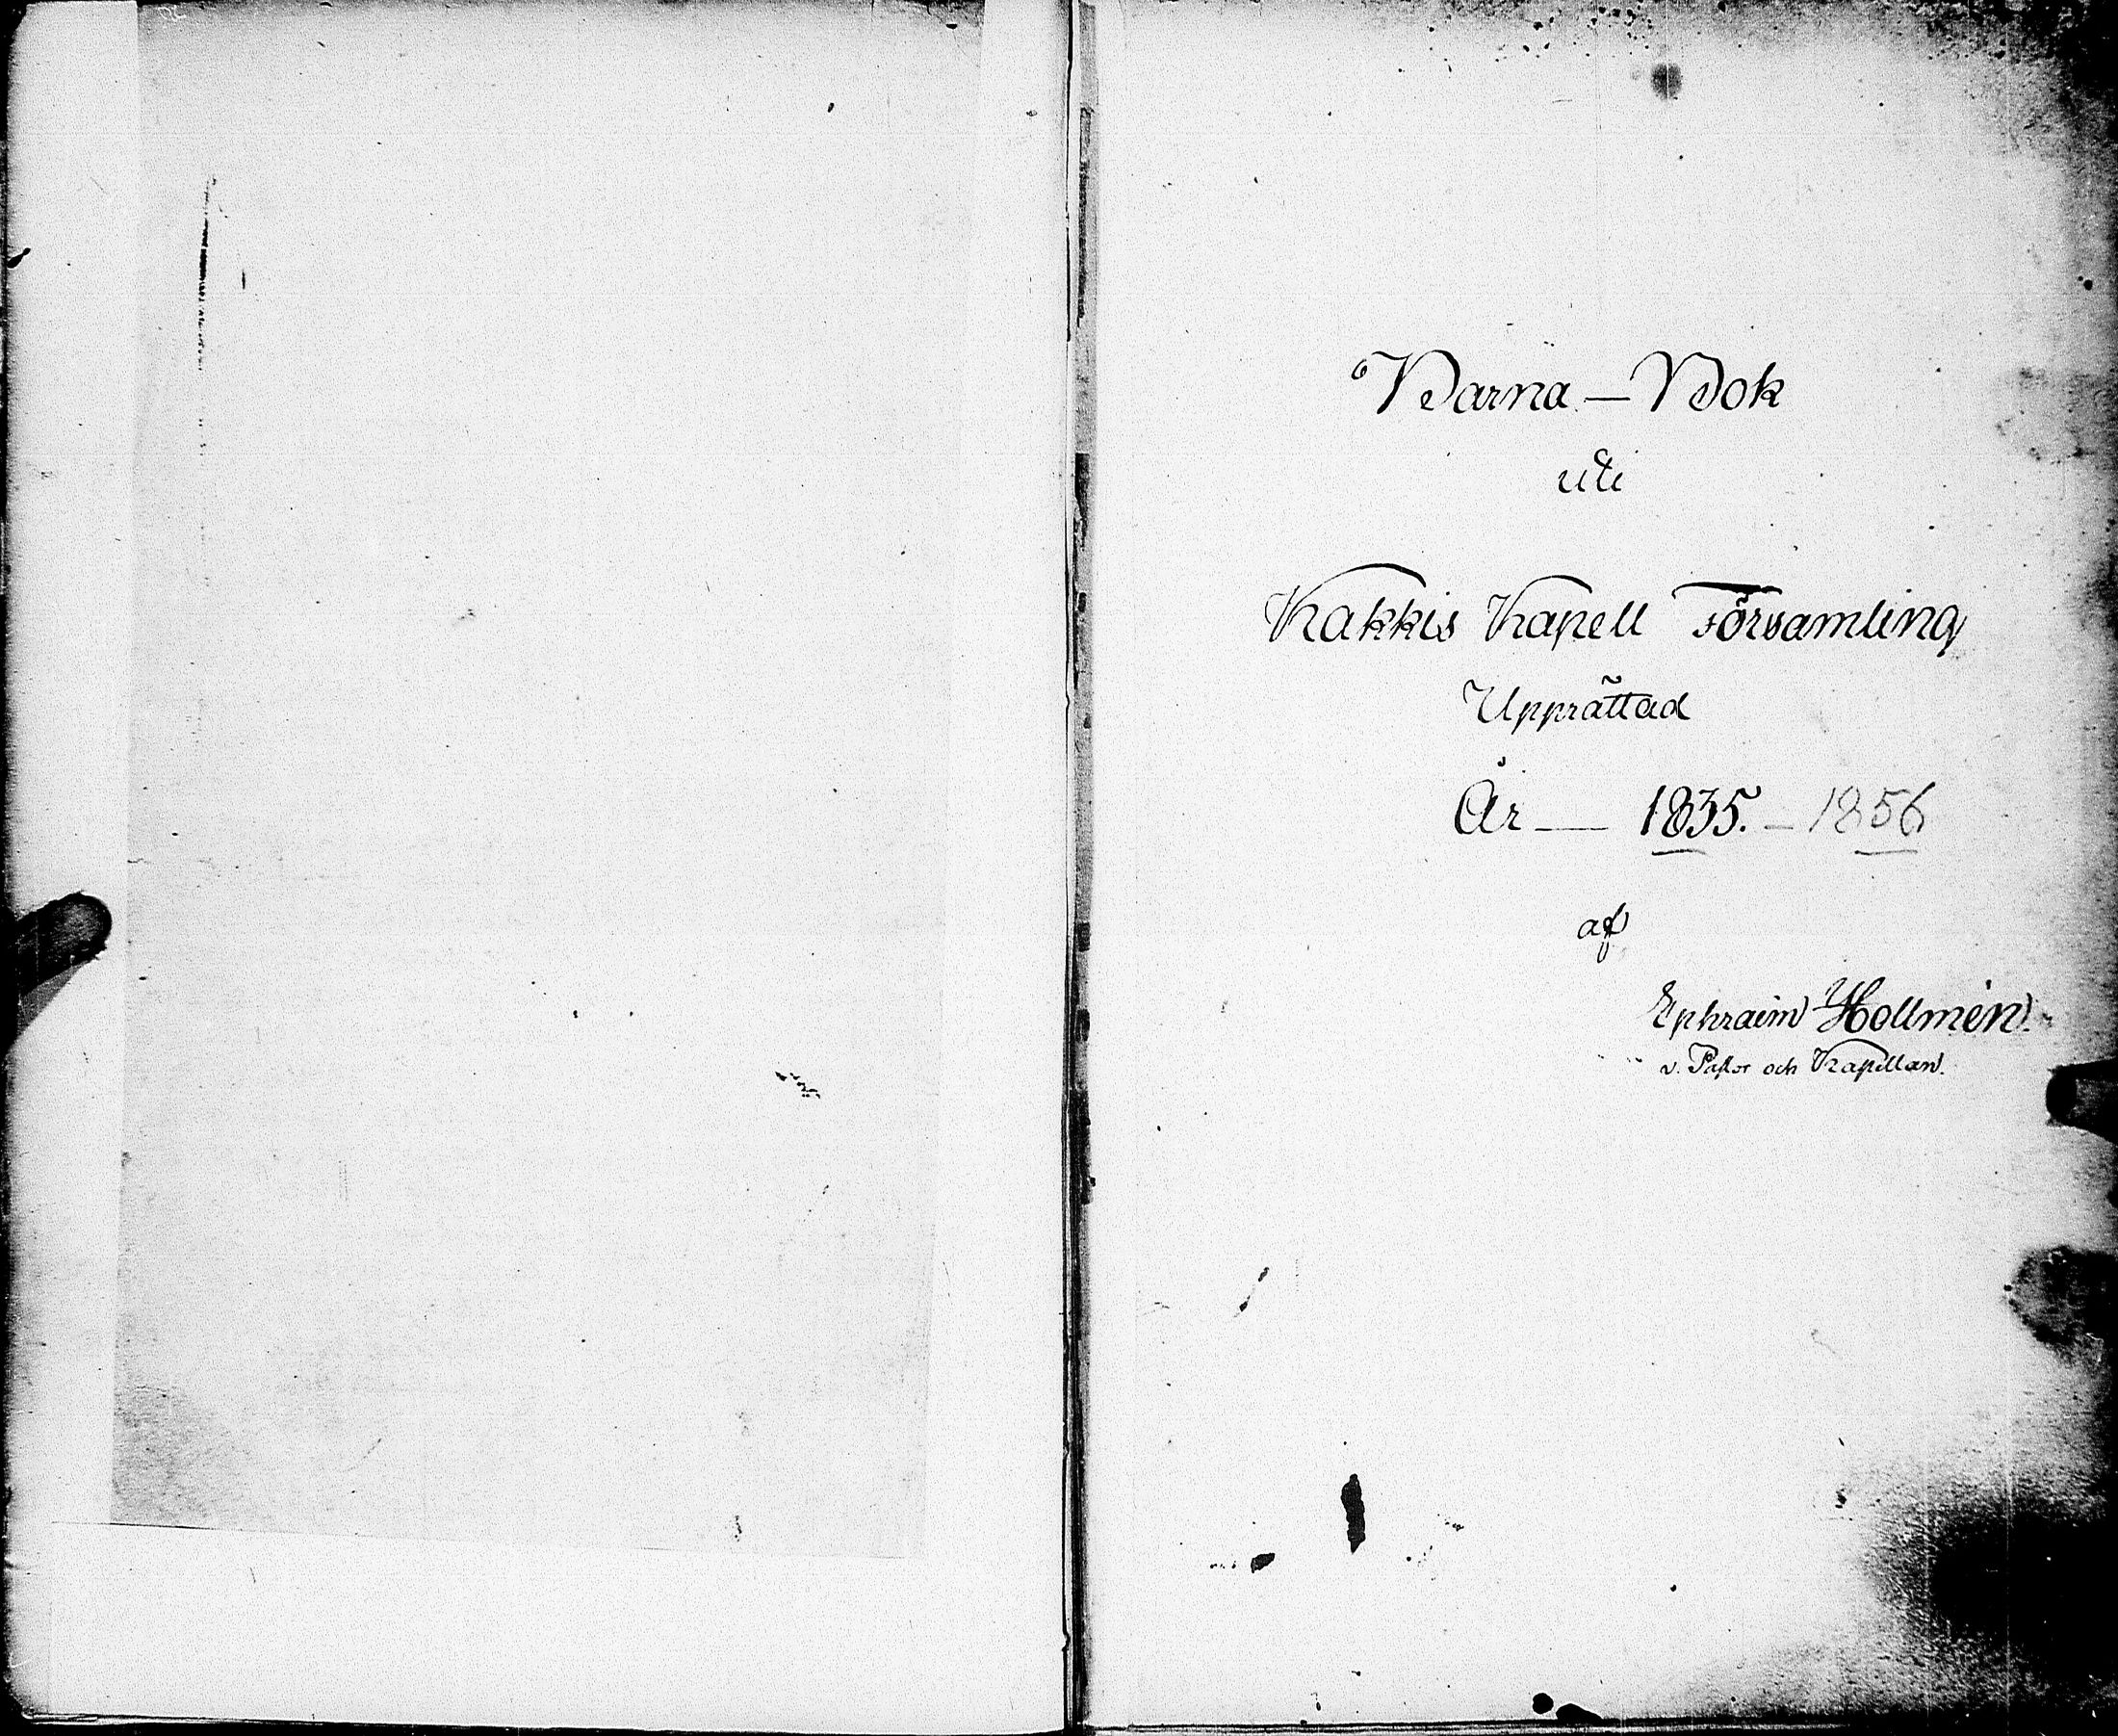 Barna – Bok
uti
Kakkis Kapell Församling
Upprättad
År — 1835. – 1856
af
Ephraim Hollmén.
v. Pastor och Kapellan.